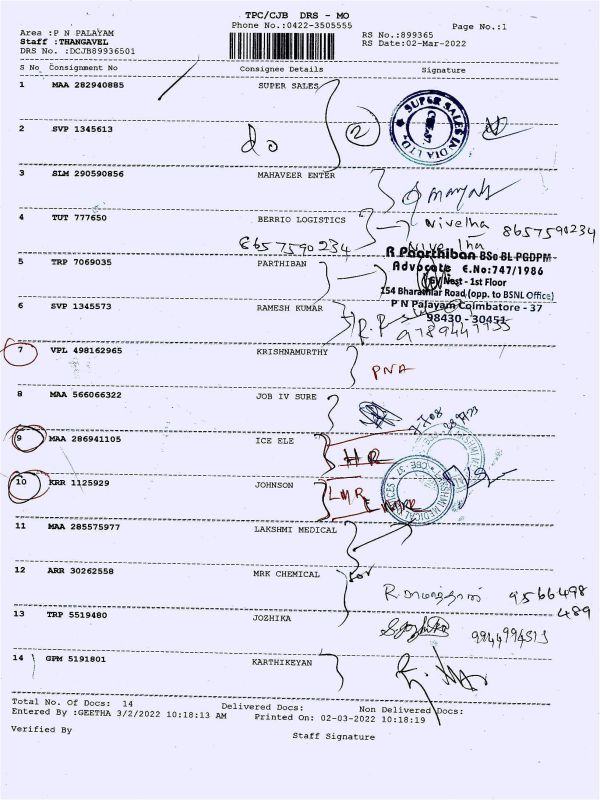 TPC/CJB DRS - MO
Phone No.:0422-3505555
Page No.:1
Area :P N PALAYAM
Staff :THANGAVEL
DRS No. :DCJB89936501
RS No.:899365
RS Date:02-Mar-2022
S No Consignment No Consignee Details Signature
1 MAA 282940885 SUPER SALES
SUPER SALES INDIA LTD.
2 SVP 1345613 do 2
3 SLM 290590856 MAHAVEER ENTER
4 TUT 777650 BERRIO LOGISTICS Nivetha 8657590234
8657590234
R Paarthiban BSc BL PGDPM
Advocate E.No:747/1986
5 TRP 7069035 PARTHIBAN
Nest - 1st Floor
154 Bharathiar Road (opp. to BSNL Office)
P N Palayam Coimbatore - 37
98430 - 30451
6 SVP 1345573 RAMESH KUMAR
7 VPL 498162965 KRISHNAMURTHY PNA
8 MAA 566066322 JOB IV SURE
9 MAA 286941105 ICE ELE
10 KRR 1125929 JOHNSON
11 MAA 285575977 LAKSHMI MEDICAL
12 ARR 30262558 MRK CHEMICAL
9566498
489
13 TRP 5519480 JOZHIKA
14 GPM 5191801 KARTHIKEYAN
Total No. Of Docs: 14 Delivered Docs: Non Delivered Docs:
Entered By :GEETHA 3/2/2022 10:18:13 AM Printed On: 02-03-2022 10:18:19
Verified By
Staff Signature